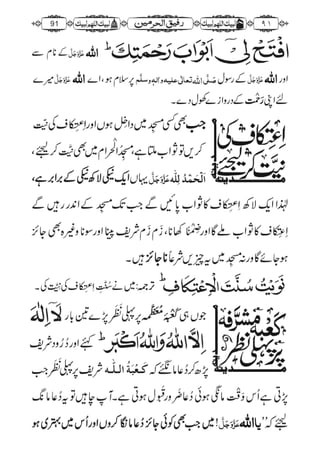 91 لبیك اللھم لبیك رفیق الحرمین لبیك اللھم لبیك ۹۱
افْتَحْ لِیْۤ اَبْوَابَ رَحْمَتِكَ ؕ اللہ عَزَّوَجَلَّ کے نام سے
اور اللہ عَزَّوَجَلَّ کے رسول صَلَّی اللہُ تعالٰی علیہ واٰلہٖ وسلَّم پر سلام ہو، اے اللہ عَزَّوَجَلَّ میرے
لئے اپنی رَحمت کے دروازے کھول دے۔
اِعتِکاف کی نیّت کر لیجئے
جب بھی کسی مسجد میں داخِل ہوں اور اِعتِکاف کی نیّت
کریں تو ثواب ملتا ہے، مسجدُالحرام میں بھی نیّت کر لیجئے،
اَلْحَمْدُ لِلّٰہ عَزَّوَجَلَّ یہاں ایک نیکی لاکھ نیکی کے برابر ہے،
لہٰذا ایک لاکھ اِعتِکاف کا ثواب پائیں گے جب تک مسجد کے اندر رہیں گے
اِعتِکاف کا ثواب ملے گا اور ضمناً کھانا، زم زم شریف پینا اور سونا وغیرہ بھی جائز
ہو جائے گا ورنہ مسجد میں یہ چیزیں شرعاً ناجائز ہیں۔
نَوَیْتُ سُنَّتَ الْاِعْتِکَافِ ؕ ترجمہ: میں نے سنّتِ اِعتِکاف کی نیّت کی۔
کعبۂ مُشَرَّفہ پر پہلی نظر
جوں ہی کعبۂ مُعَظَّمہ پر پہلی نظر پڑے تین بار لَاۤ اِلٰہَ
اِلَّا اللہُ وَاللہُ اَکْبَرُ ؕ کہئے اور دُرُود شریف
پڑھ کر دُعا مانگئے کہ کَعْبَۃُ اللہ شریف پر پہلی نظر جب
پڑتی ہے اُس وقت مانگی ہوئی دُعا ضَرور قَبول ہوتی ہے۔ آپ چاہیں تو یہ دُعا مانگ
لیجئے کہ ”یااللہ عَزَّوَجَلَّ! میں جب بھی کوئی جائز دُعا مانگا کروں اور اُس میں بہتری ہو